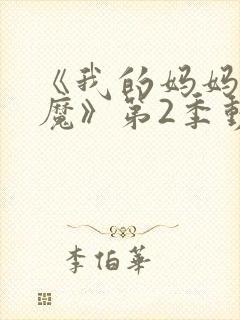 《我的妈妈
魔》第2季動
李伯華